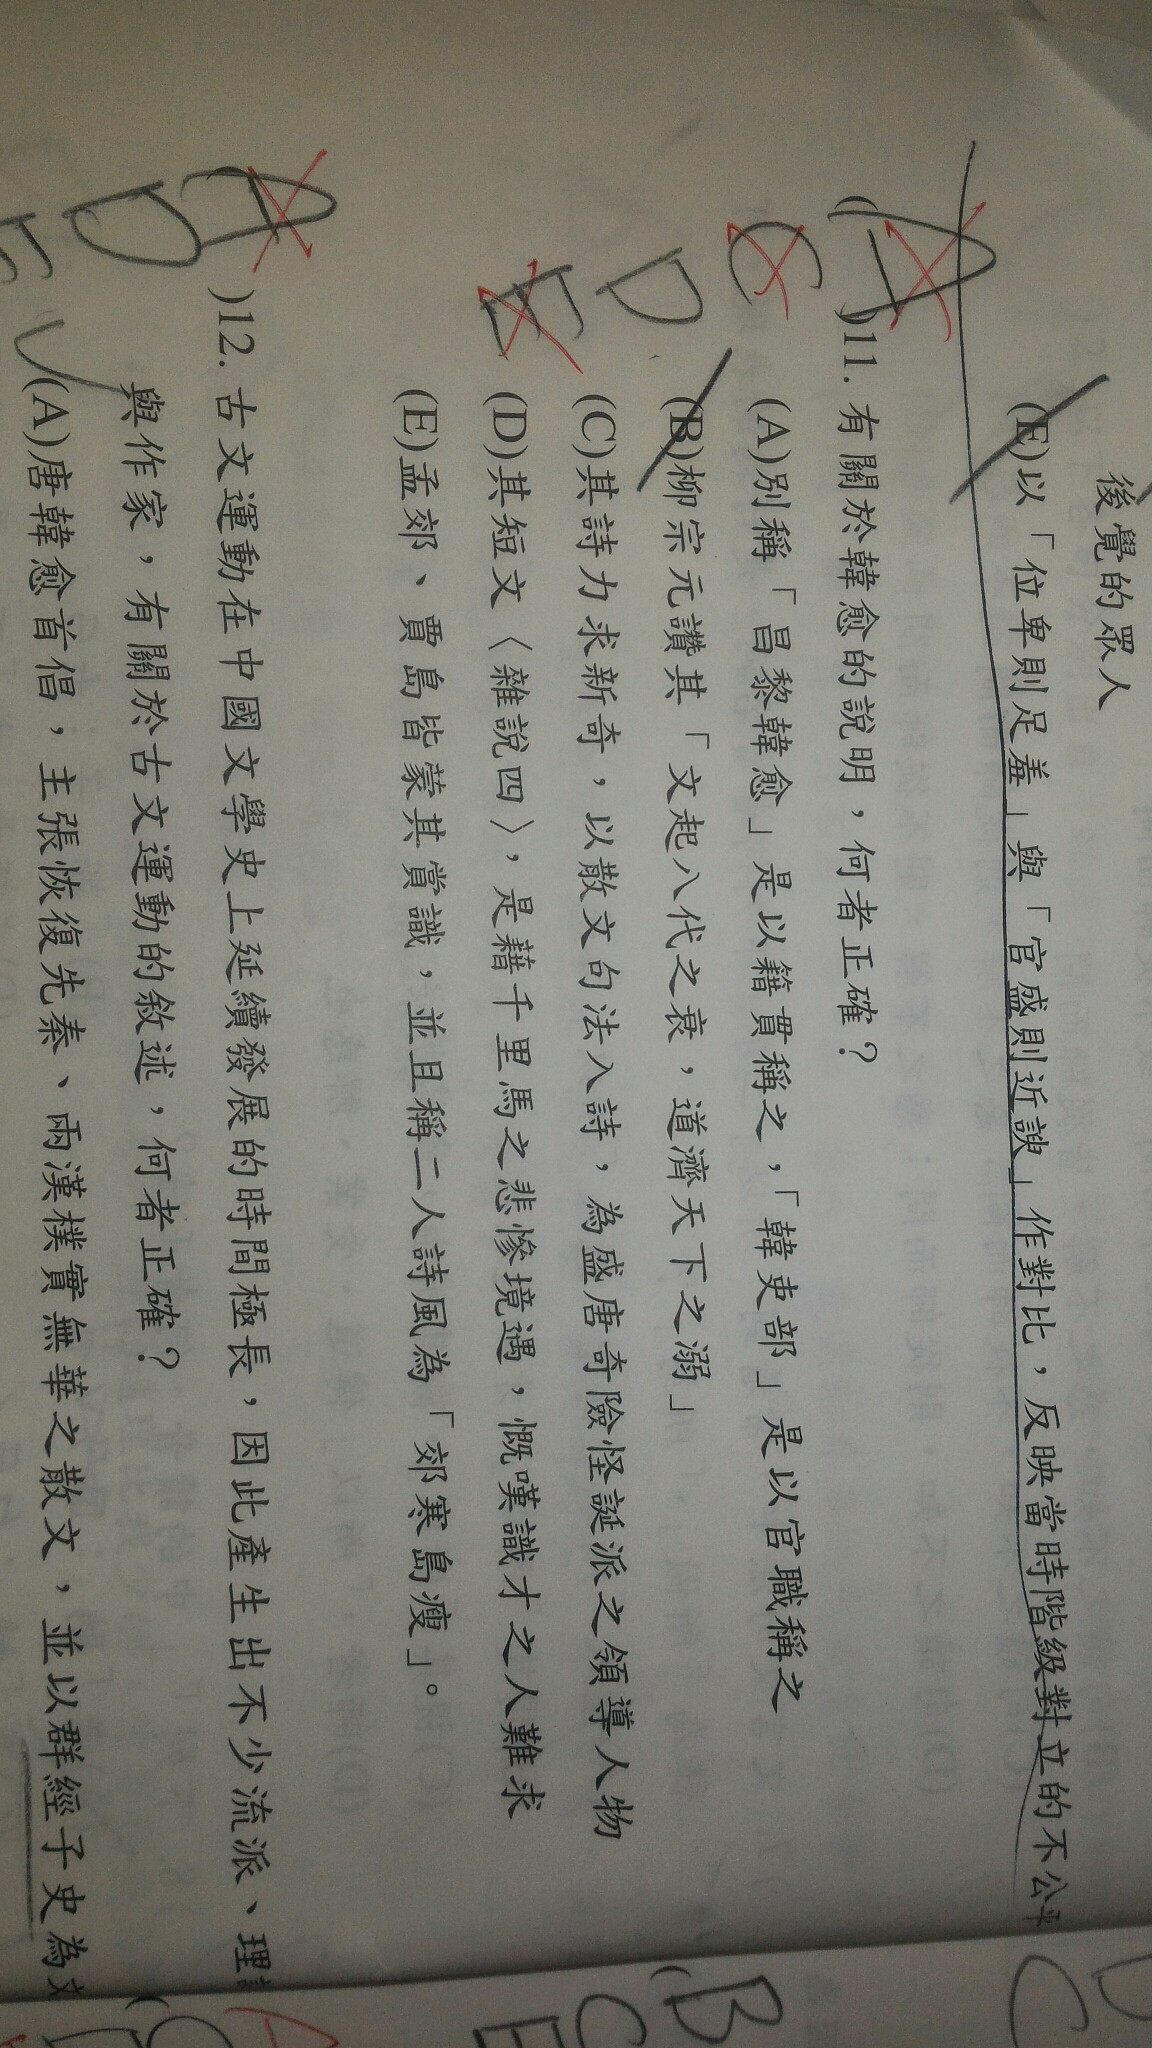 後覺的眾人
(E)以「位卑則足羞」與「官盛則近諛」作對比，反映當時階級對立的不公平
A
C
D
E
()11. 有關於韓愈的說明，何者正確？
(A)別稱「昌黎韓愈」是以籍貫稱之，「韓吏部」是以官職稱之
(B)柳宗元讚其「文起八代之衰，道濟天下之溺」
(C)其詩力求新奇，以散文句法入詩，為盛唐奇險怪誕派之領導人物
(D)其短文〈雜說四〉，是藉千里馬之悲慘境遇，慨嘆識才之人難求
(E)孟郊、賈島皆蒙其賞識，並且稱二人詩風為「郊寒島瘦」。
A
D
E
()12. 古文運動在中國文學史上延續發展的時間極長，因此產生出不少流派、理
與作家，有關於古文運動的敘述，何者正確？
(A)唐韓愈首倡，主張恢復先秦、兩漢樸實無華之散文，並以群經子史為文
D
C
B
C
E
A